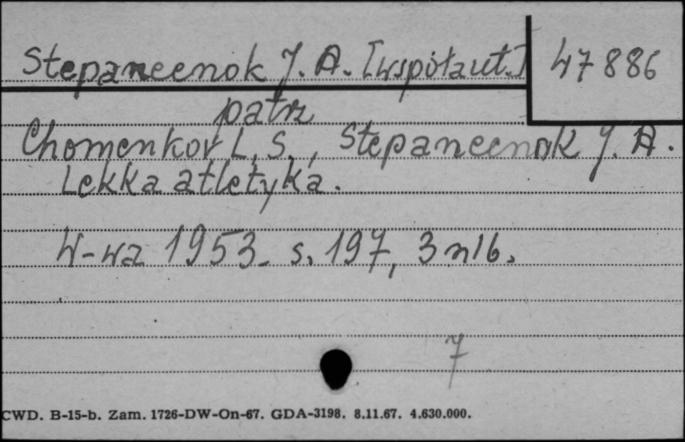 Stepaneenok J. A. [współaut.] 47886
patrz
Chomenkov L. S., Stepaneenok J. A.
Lekka atletyka.
W-wa 1953. s. 197, 3 nlb.
7
CWD. B-15-b. Zam. 1726-DW-On-67. GDA-3198. 8.11.67. 4.630.000.